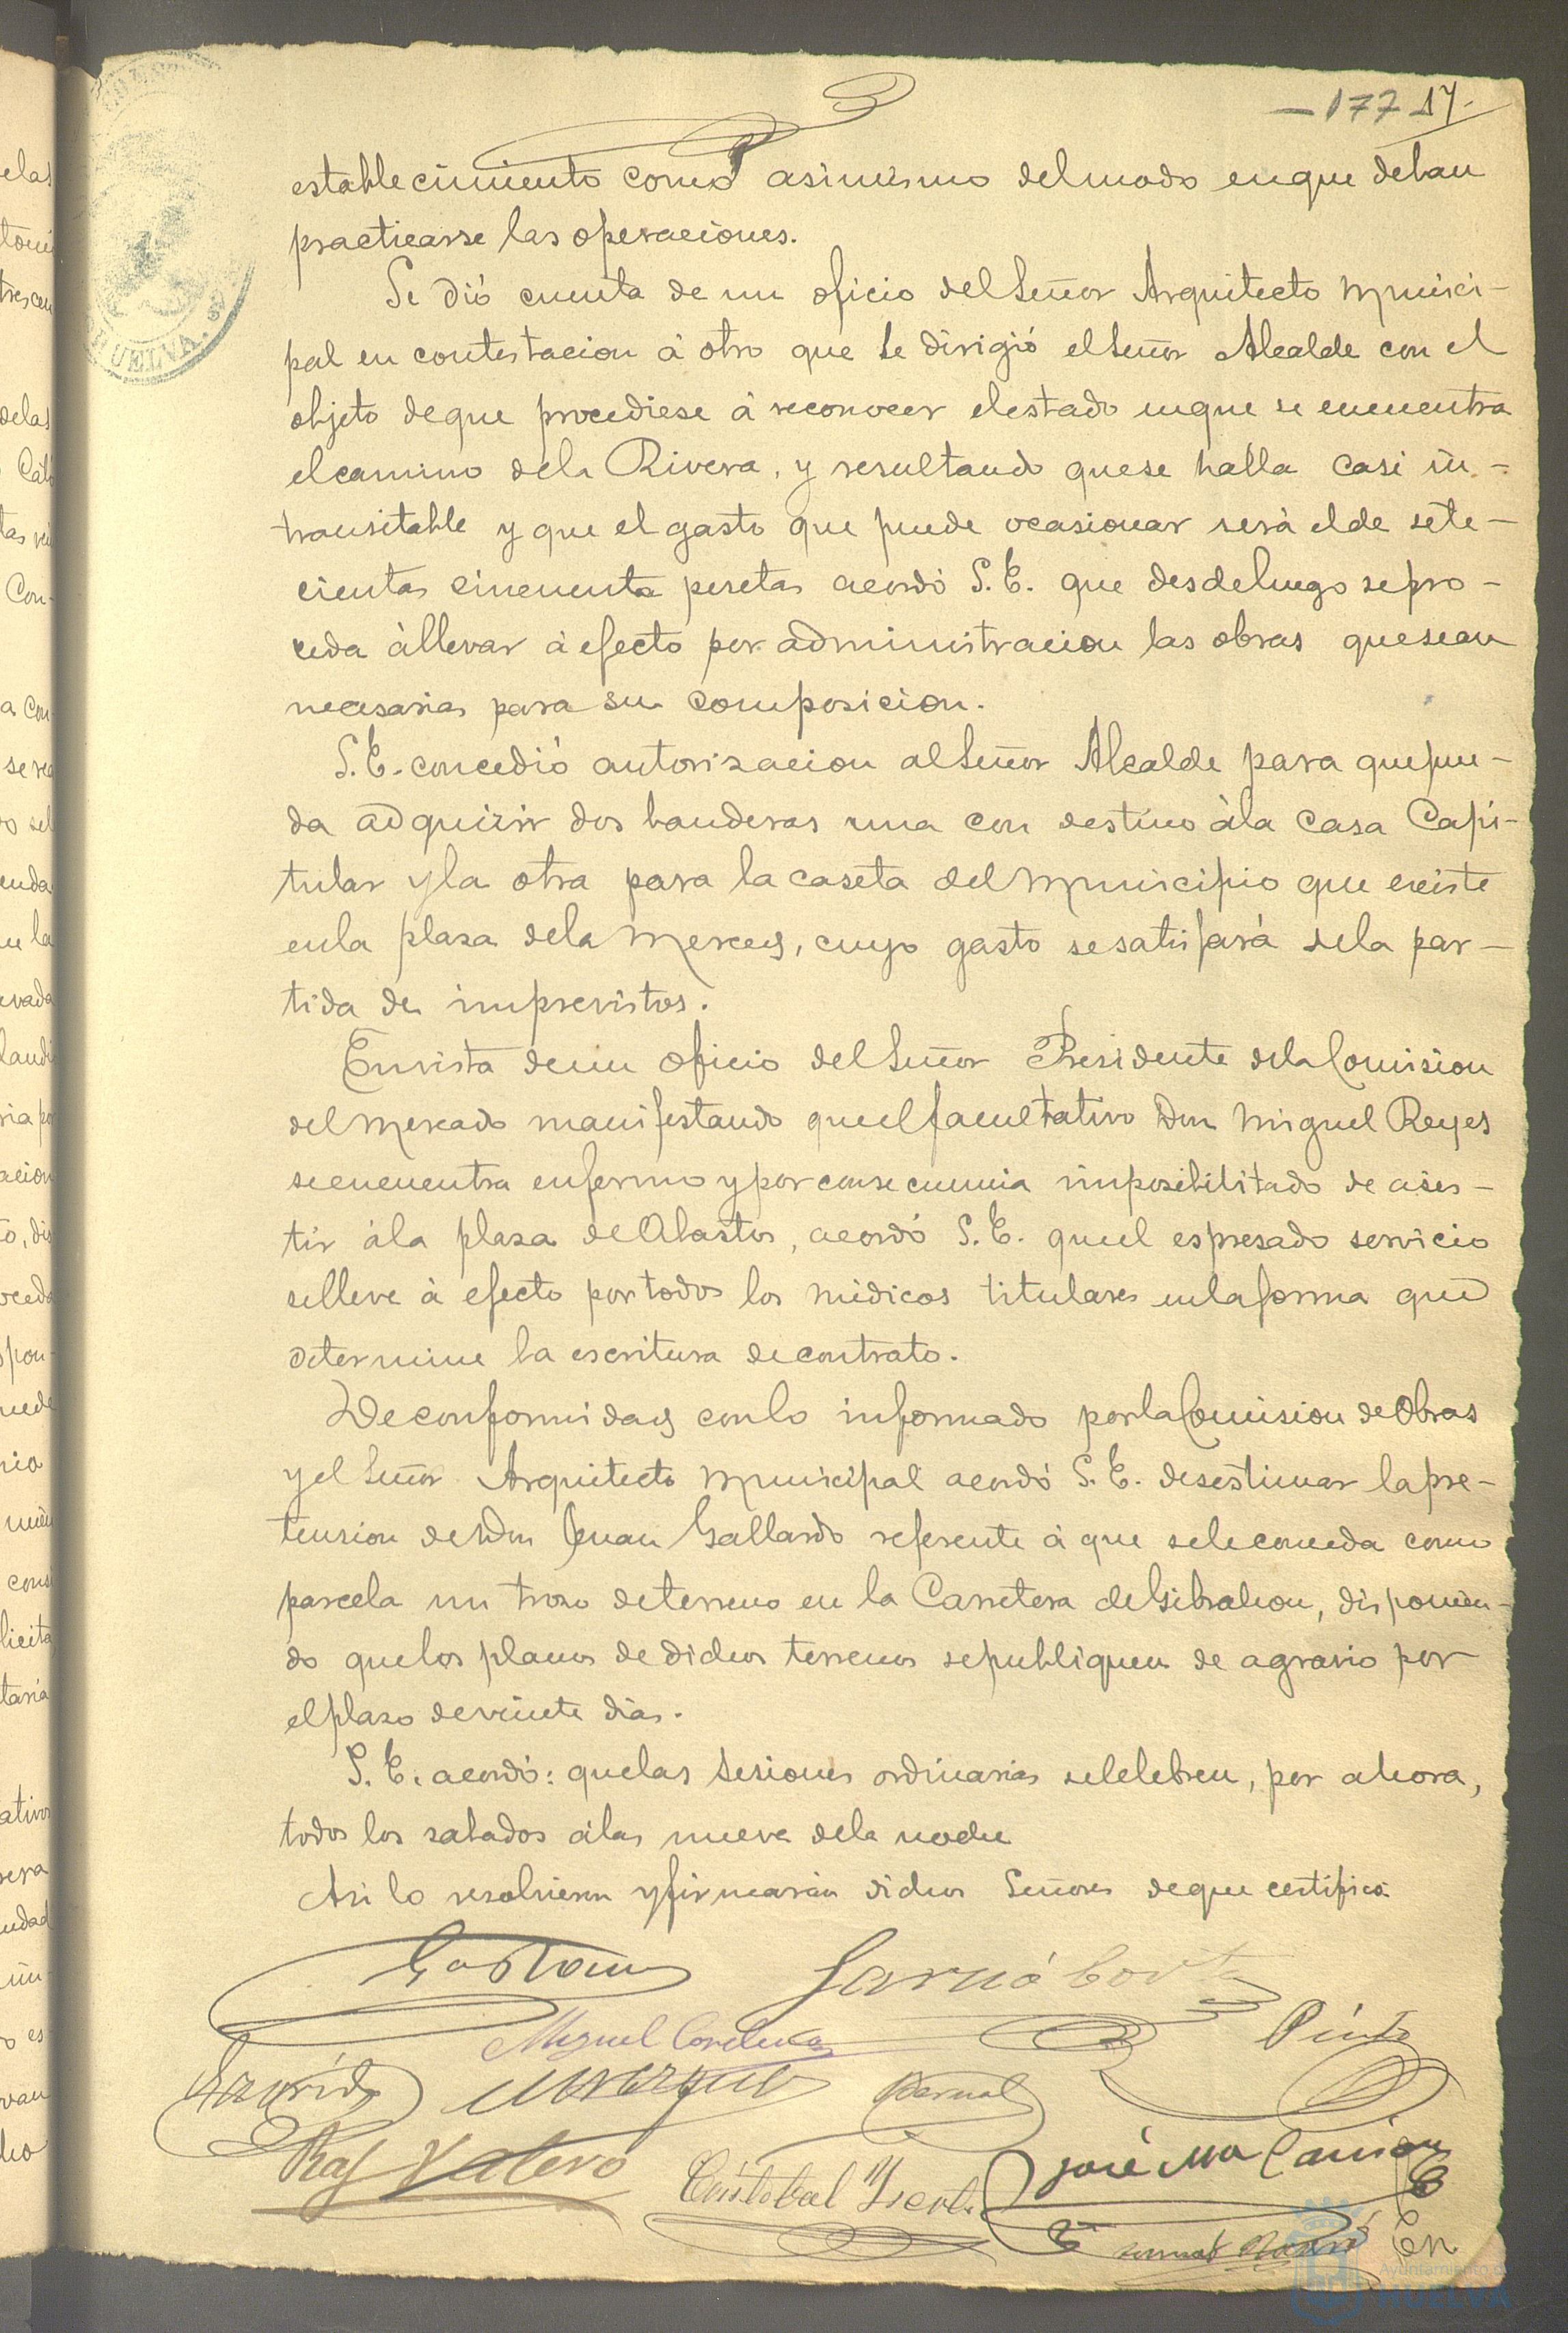 - 177 17-
establecimiento como asimismo del modo en que deban
practicarse las operaciones.
Se dió cuenta de un oficio del Señor Arquitecto Munici-
pal en contestacion á otro que le dirigió el Señor Alcalde con el
objeto de que procediese á reconocer el estado en que se encuentra
el camino de la Rivera, y resultando que se halla casi in-
transitable y que el gasto que puede ocasionar será el de sete-
cientas cincuenta pesetas acordó S. E. que desde luego se pro-
ceda á llevar á efecto por administracion las obras que sean
necesarias para su composicion.
S. E. concedió autorizacion al Señor Alcalde para que pue-
da adquirir dos banderas una con destino á la Casa Capi-
tular y la otra para la caseta del Municipio que existe
en la plaza de la Merced, cuyo gasto se satisfará de la par-
tida de imprevistos.
En vista de un oficio del Señor Presidente de la Comision
del Mercado manifestando que el facultativo Don Miguel Reyes
se encuentra enfermo y por consecuencia imposibilitado de asis-
tir á la plaza de Abastos, acordó S. E. que el espresado servicio
se lleve á efecto por todos los médicos titulares en la forma que
determine la escritura de contrato.
De conformidad con lo informado por la Comision de Obras
y el Señor Arquitecto Municipal acordó S. E. desestimar la pre-
tension de Don Juan Gallardo referente á que se le conceda como
parcela un trozo de terreno en la Carretera de Gibraleon, disponien-
do que los planos de dichos terrenos se publiquen de agravio por
el plazo de veinte dias.
S. E. acordó: que las sesiones ordinarias se celebren, por ahora,
todos los sabados á las nueve de la noche
Asi lo resolvieron y firmarán dichos Señores de que certifico
Garcia Cortes
Miguel Cordero
Pinto
Marquez
Bernal
Raf Valero
Cristobal
José Ma
HUELVA.
Ayuntamiento de
HUELVA